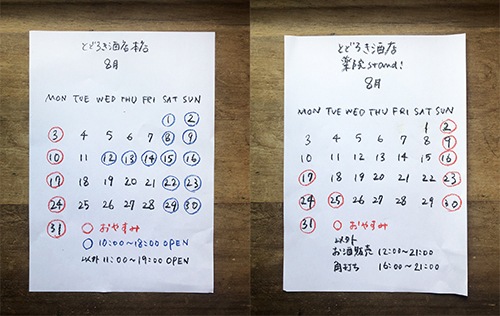 とどろき酒店本店
8月
MON TUE WED THU FRI SAT SUN
1 2
3 4 5 6 7 8 9
10 11 12 13 14 15 16
17 18 19 20 21 22 23
24 25 26 27 28 29 30
31 ○ おやすみ
○ 10:00〜18:00 OPEN
以外 11:00〜19:00 OPEN
とどろき酒店
薬院stand!
8月
MON TUE WED THU FRI SAT SUN
1 2
3 4 5 6 7 8 9
10 11 12 13 14 15 16
17 18 19 20 21 22 23
24 25 26 27 28 29 30
31 ○ おやすみ
以外
お酒販売 12:00〜21:00
角打ち 16:00〜21:00